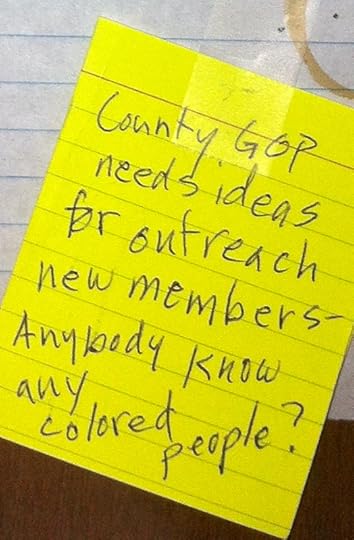 County GOP
needs ideas
for outreach
new members-
Anybody know
any
colored people?